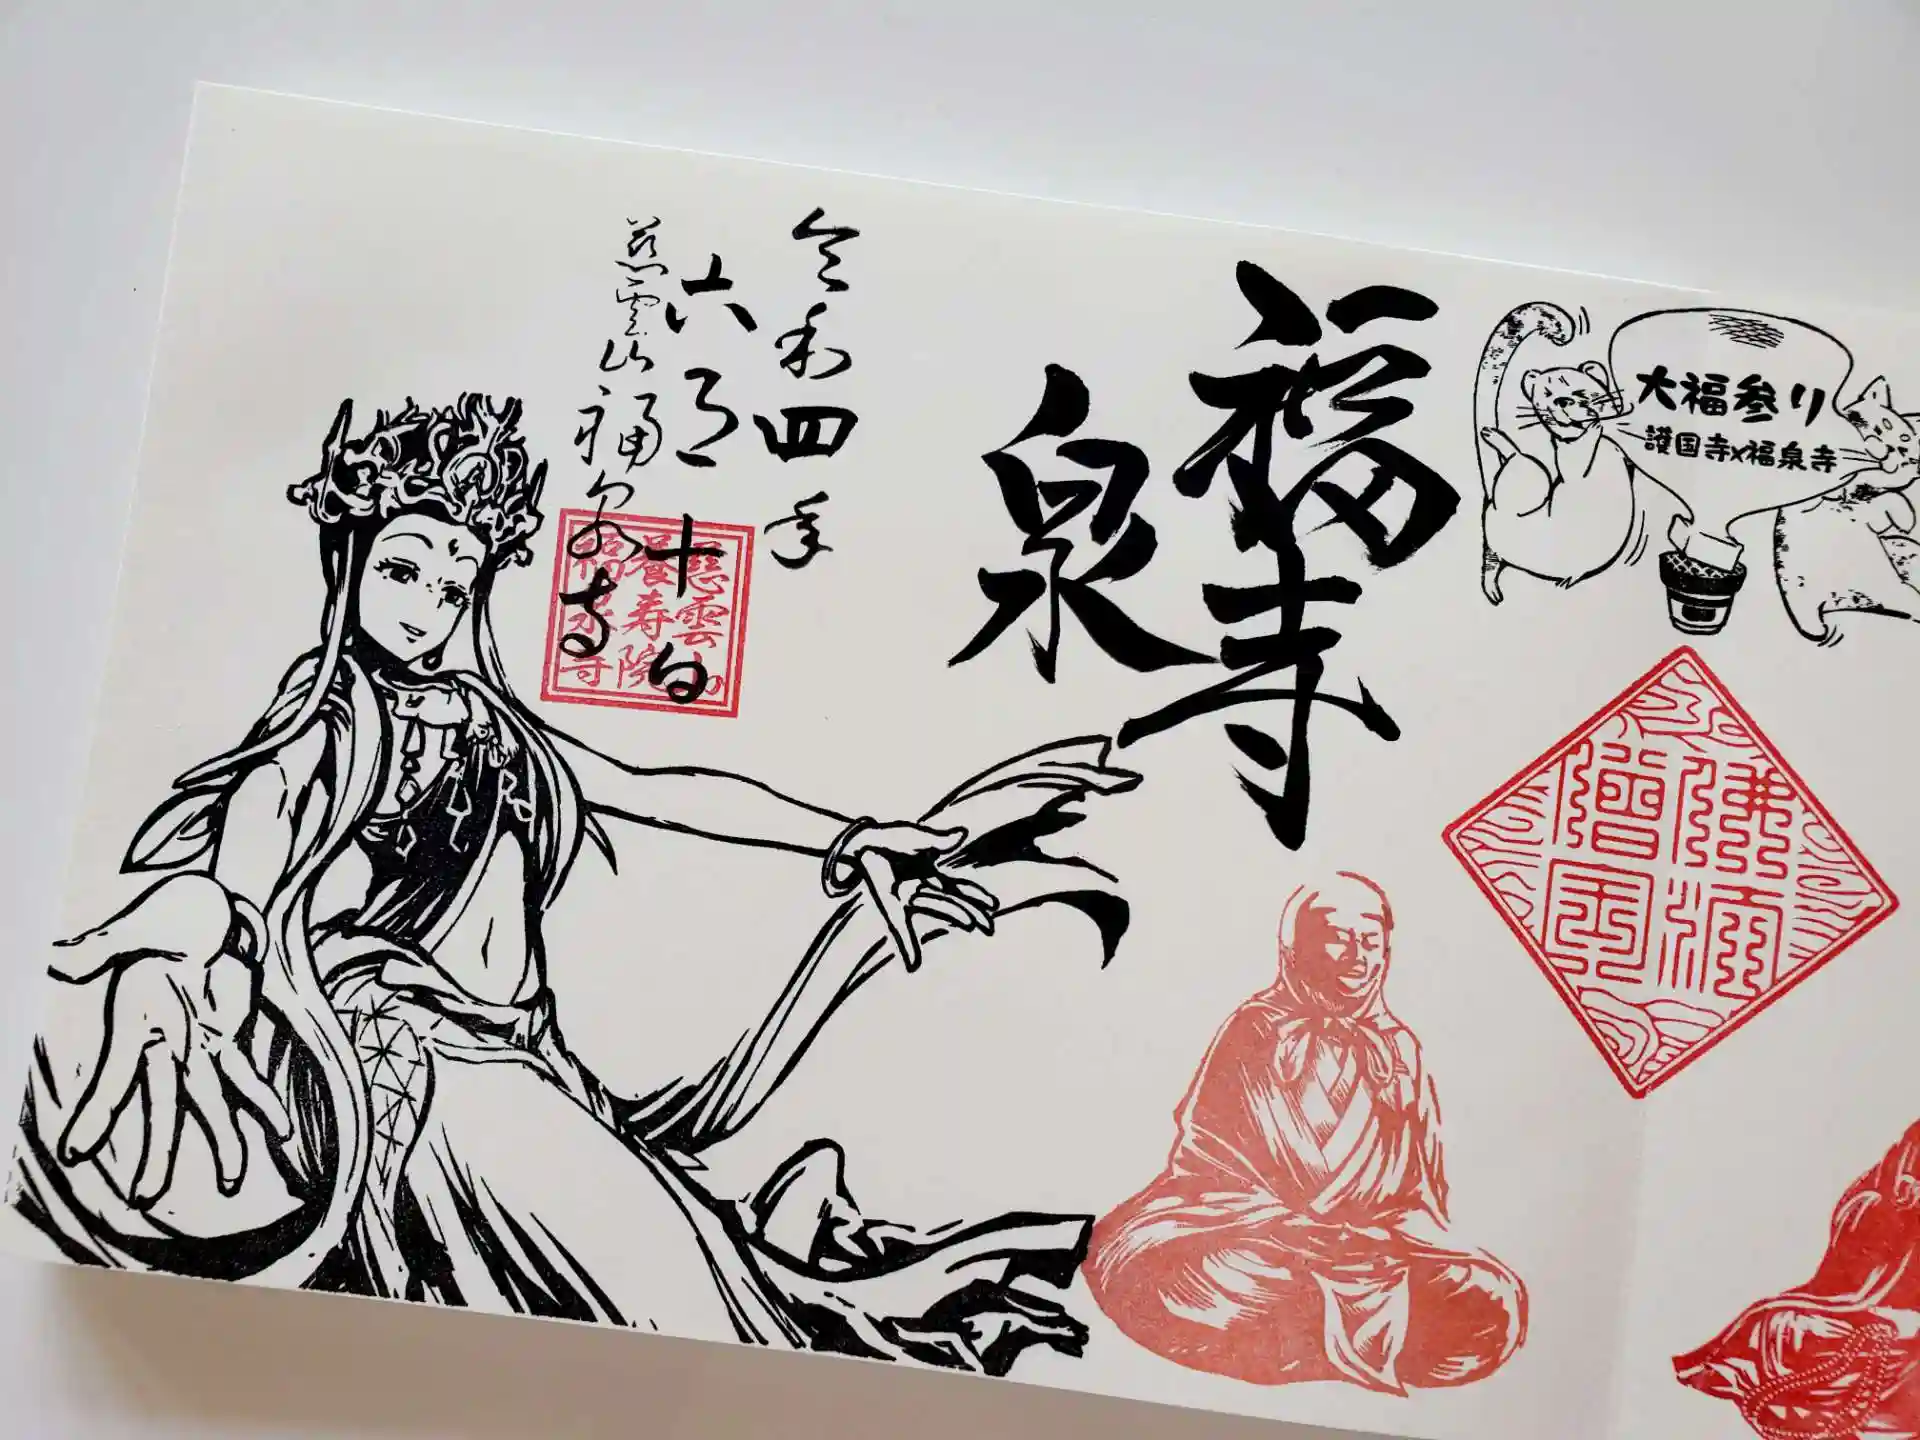 大福参り
護国寺x福泉寺
福
寺
泉
令和四年
六月十日
慈雲山福泉寺
慈雲山
養寿院
福泉寺